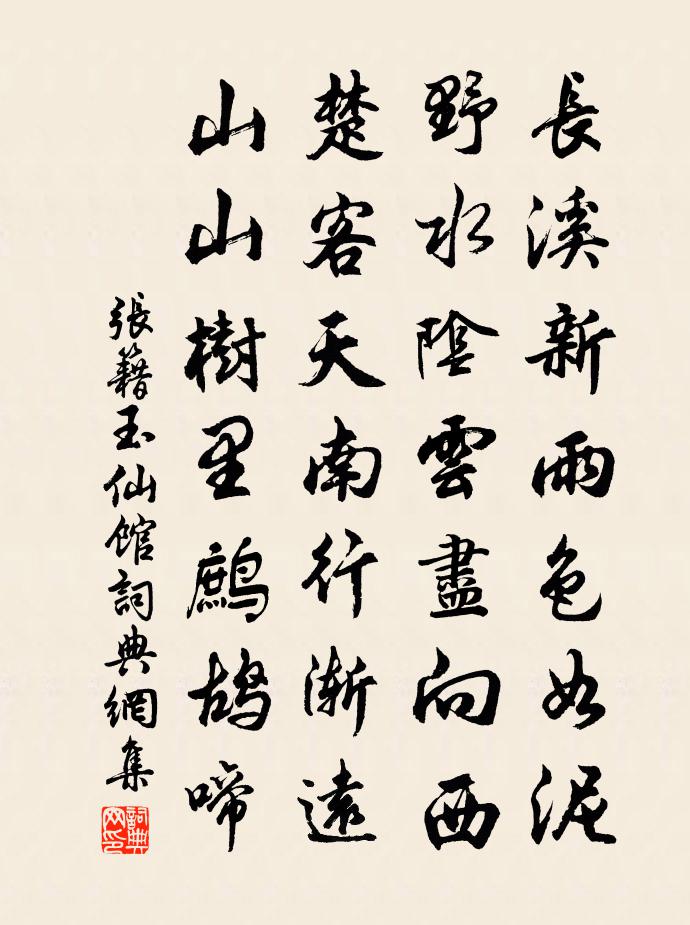 長溪新雨色如泥
野水陰雲盡向西
楚客天南行漸遠
山山樹里鷓鴣啼
張籍玉仙館詞典網集
詞典网印